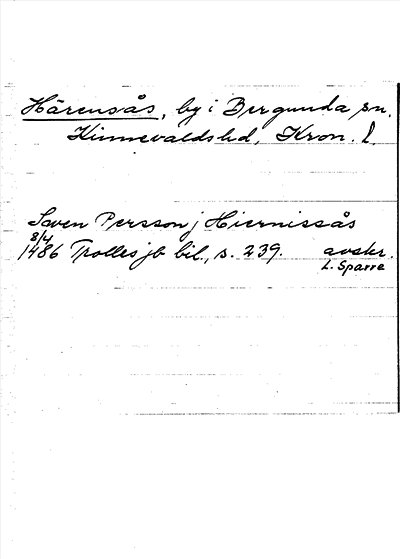 Härensås, by i Bergunda sn.
Kinnevalds hd, Kron. l.
Swen Persson j Hiernissås
8/4
1486 Trolles jb bil., s. 239. avskr.
L. Sparre